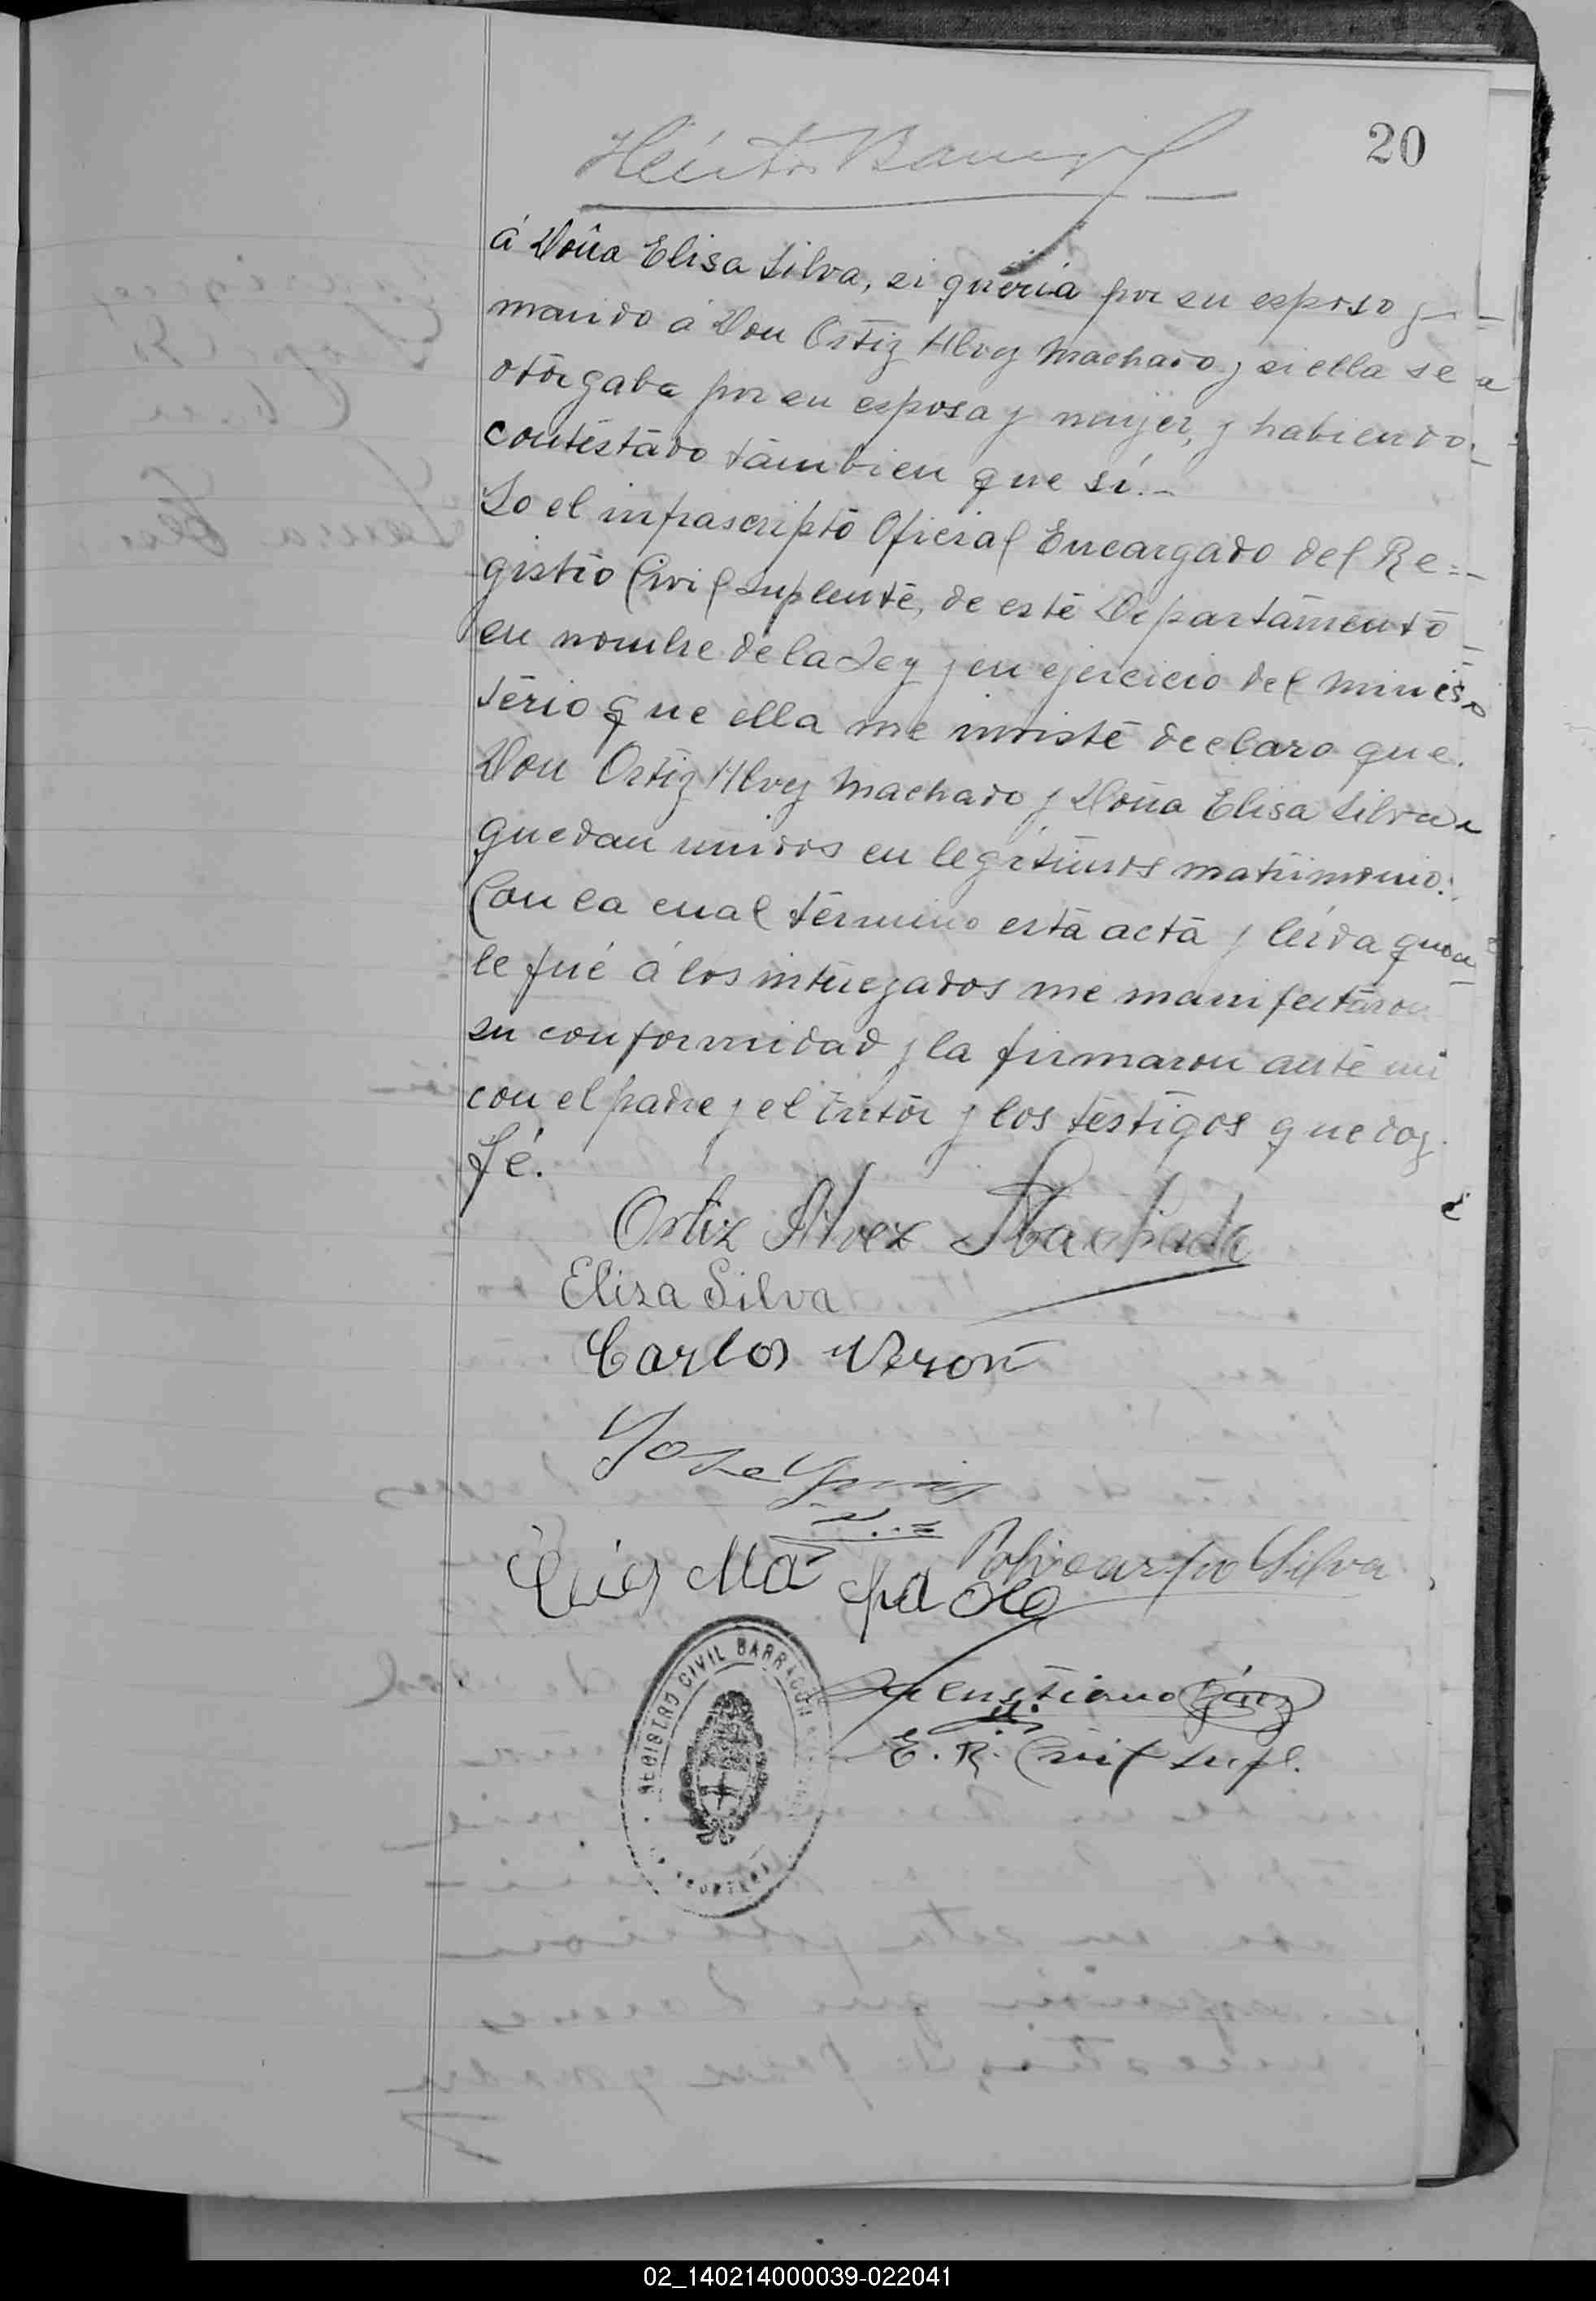 20
Héctor
á Doña Elisa Silva, si queria por su esposo y
marido á Don Ortiz Alvez Machado y si ella se
otorgaba por su esposa y mujer, y habiendo
contestado tambien que sí.-
Yo el infrascripto Oficial Encargado del Re=
gistro Civil suplente, de este Departamento
en nombre de la Ley y en ejercicio del minis
terio que ella me inviste declaro que
Don Ortiz Alvez Machado y Doña Elisa Silva
quedan unidos en legitimos matrimonio.
Con la cual termino esta acta y leida que
le fué á los interezados me manifestaron
su conformidad y la firmaron ante mi
con el padre y el tutor y los testigos que doy
fé.
Ortiz Alvez Machado
Elisa Silva
Carlos Veron
Jose
Policarpo Silva
Luis Ma
REGISTRO CIVIL BARRACON
E. R. Civil Supl.
02_140214000039-022041